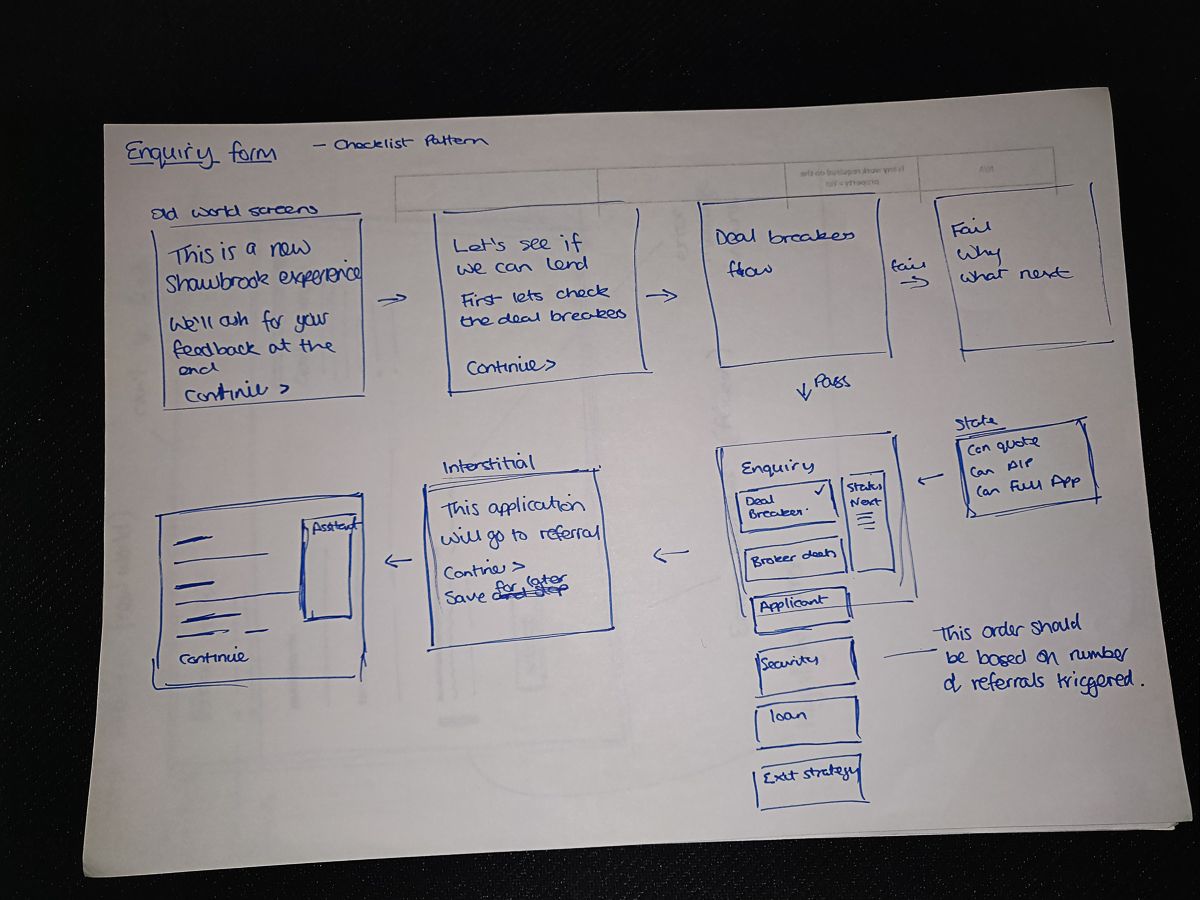 Enquiry form - Checklist Pattern
N/A
Is any work required on the
property - list
Old world screens
This is a new
Shawbrook experience
We'll ask for your
feedback at the
end
Continue >
Let's see if
we can lend
First lets check
the deal breakers
Continue >
Deal breaker
flow
fail
Fail
Why
what next
Pass
State
Can quote
Can AIP
Can Full App
Enquiry
Deal
Breaker.
Status
Next
Broker deets
Applicant
Security
loan
Exit strategy
This order should
be based on number
of referrals triggered.
Interstitial
This application
will go to referral
Continue >
Save for later
Continue